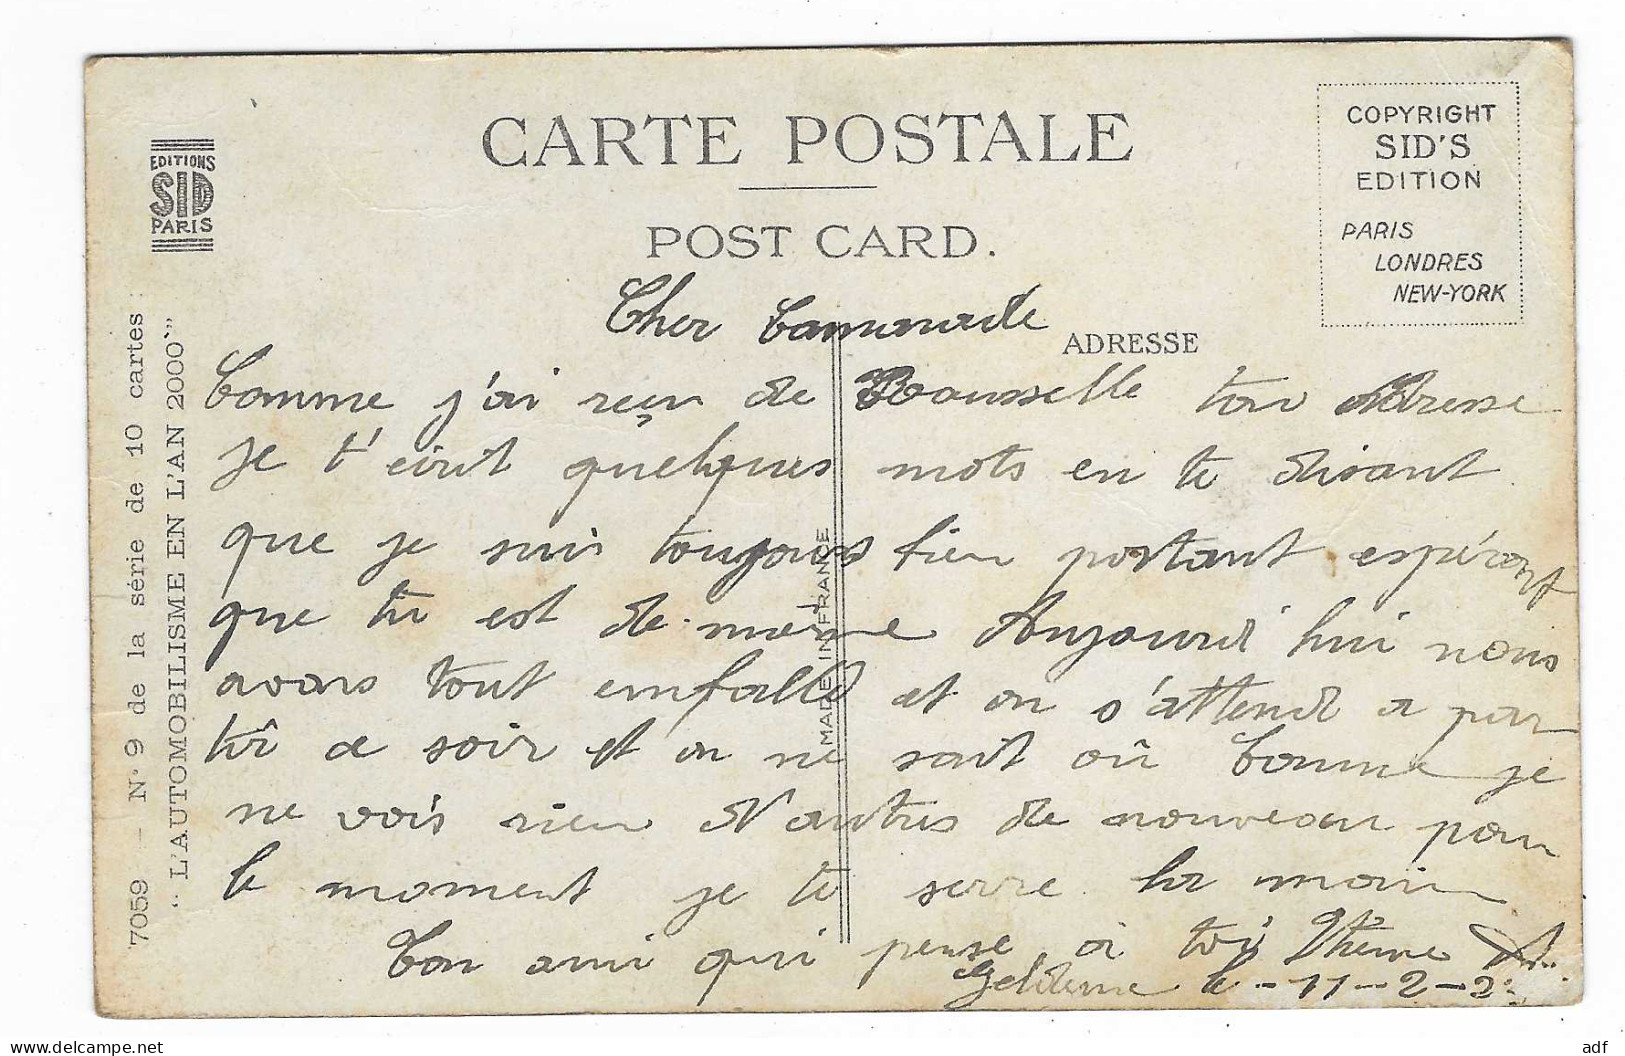 CARTE POSTALE
POST CARD.
EDITIONS
SID
PARIS
COPYRIGHT
SID'S
EDITION
PARIS
LONDRES
NEW-YORK
ADRESSE
7059 — N° 9 de la série de 10 cartes :
" L'AUTOMOBILISME EN L'AN 2000 "
MADE IN FRANCE
Cher Camarade
Comme j'ai reçu de Rousselle ton Adresse
je t'écrit quelques mots en te disant
que je suis toujours bien portant espérant
que tu est de même Aujourd'hui nous
avons tout emballé et on s'attend a par
tir ce soir et on ne sait où Comme je
ne vois rien d'autres de nouveau pour
le moment je te serre la main
Ton ami qui pense à toi
le - 11 - 2 -
adf